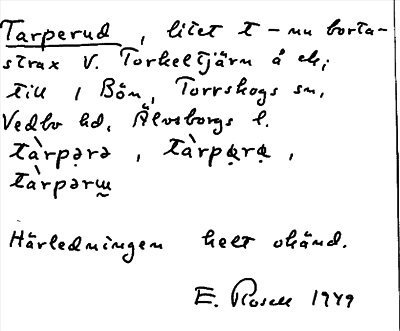 Tarperud, litet t - nu borta-
strax V. Torkeltjärn å ek;
till 1 Bön, Torrskogs sn,
Vedbo hd, Älvsborgs l.
tàrpərə, tàrpạrạ,
tàrpərɯ̰
Härledningen helt okänd.
E. Rosell 1949